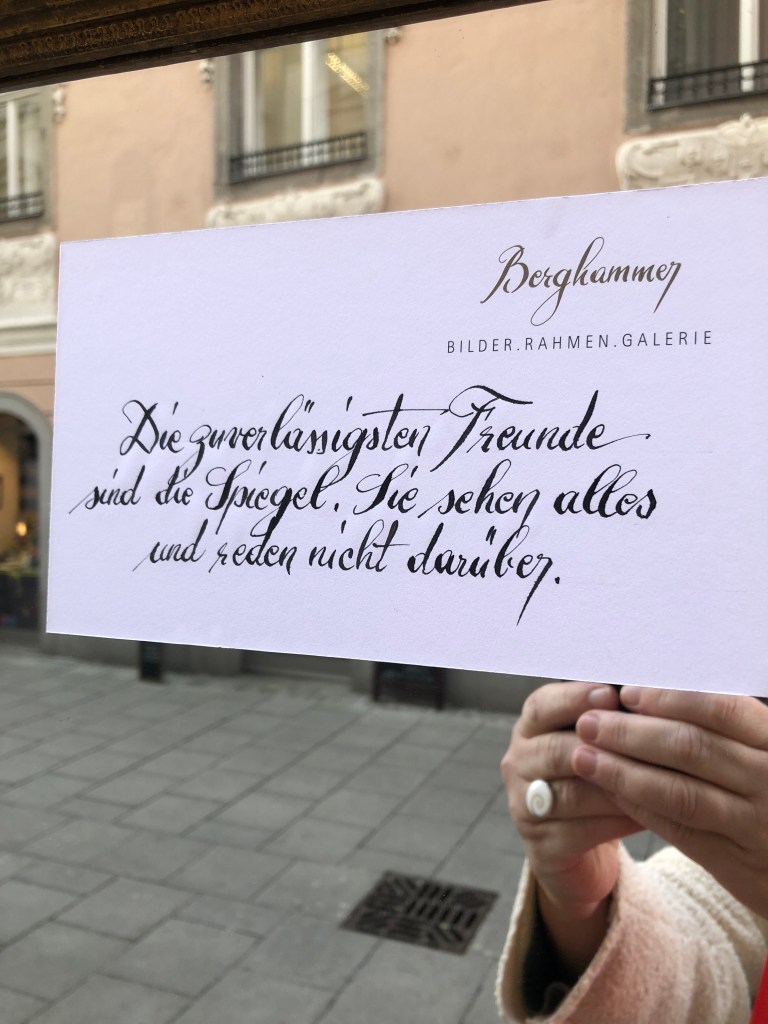 Berghammer
BILDER.RAHMEN.GALERIE
Die zuverlässigsten Freunde
sind die Spiegel. Sie sehen alles
und reden nicht darüber.